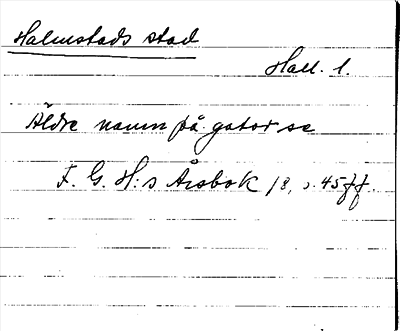 Halmstads stad
Hall. l.
Äldre namn på gator se
F. G. H:s Årsbok 18, s. 45 ff.